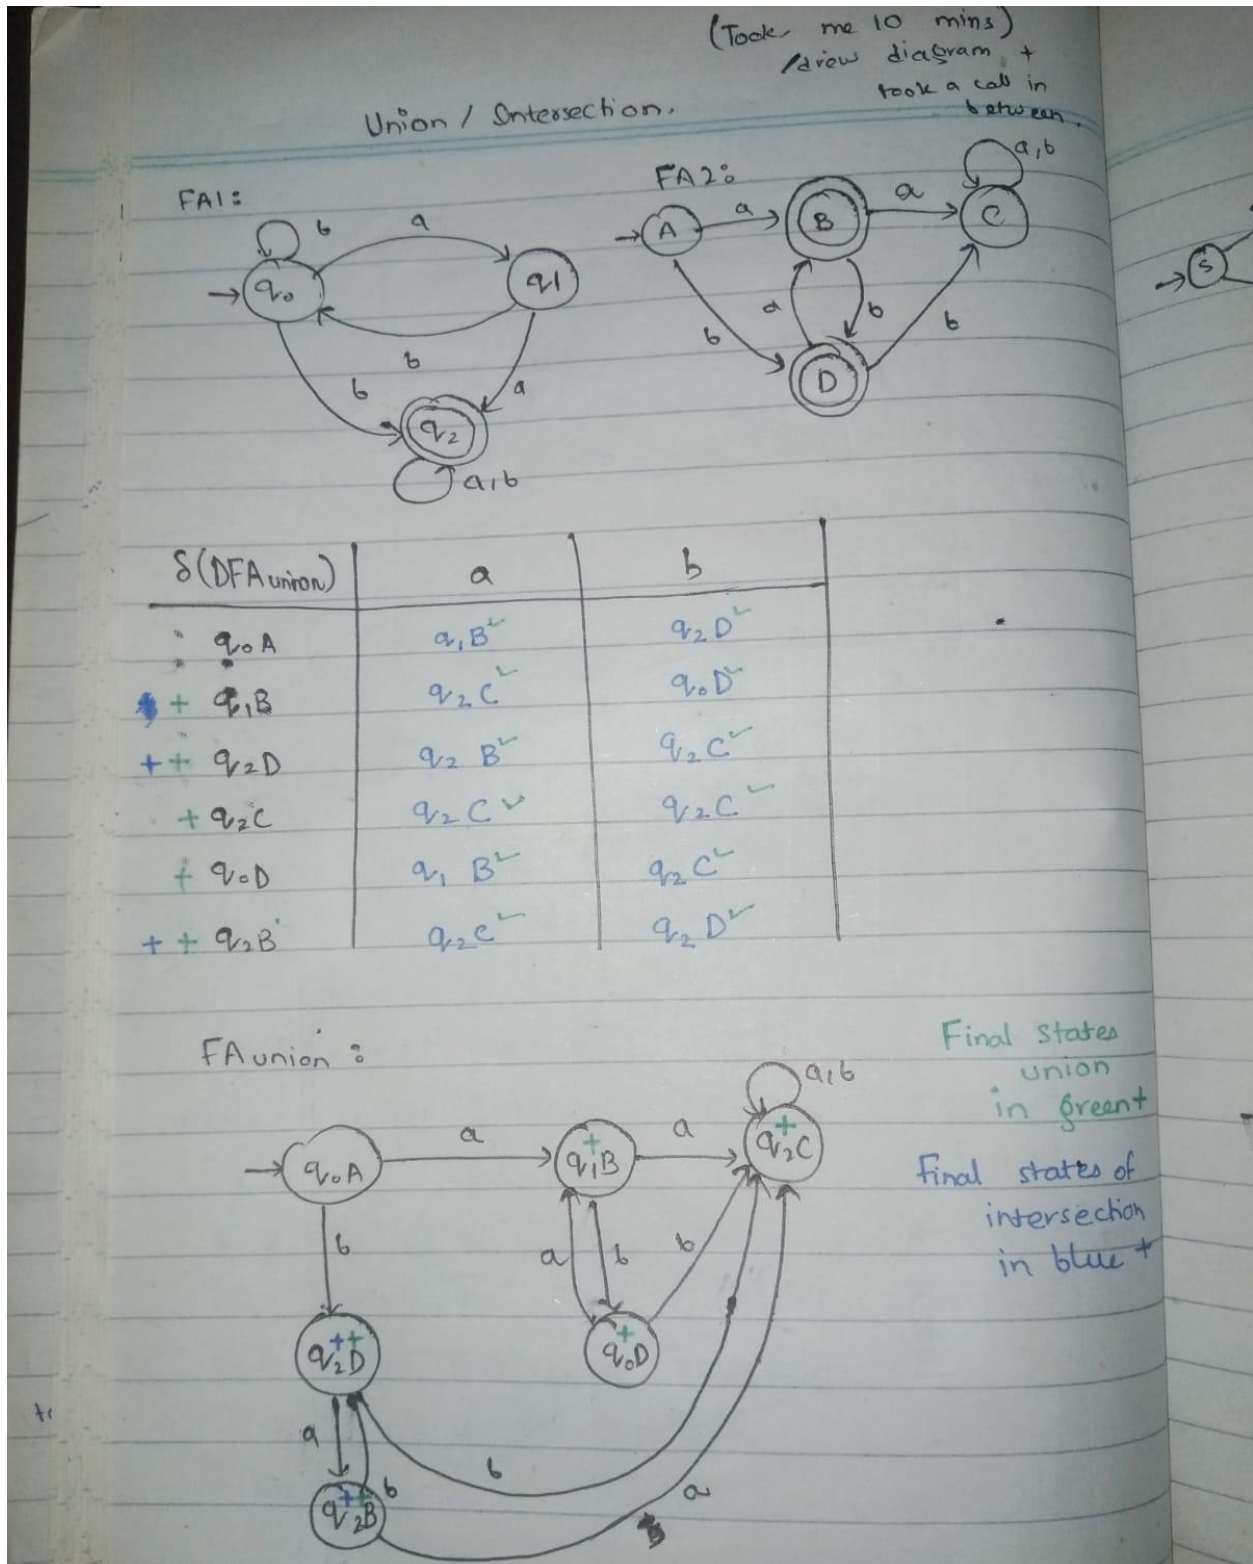 (Took me 10 mins)
/drew diagram +
took a call in
between.
Union / Intersection.
FA1:
b
a
q0
q1
b
b
a
q2
a,b
FA2:
a,b
A
a
B
a
C
b
a
b
b
D
S
δ(DFAunion)
a
b
q0A
q1B ✓
q2D ✓
+ q1B
q2C ✓
q0D ✓
++ q2D
q2 B ✓
q2C ✓
+ q2C
q2C ✓
q2C ✓
+ q0D
q1 B ✓
q2C ✓
++ q2B
q2C ✓
q2D ✓
FAunion:
Final states
union
in green+
Final states of
intersection
in blue +
a,b
q0A
a
+
q1B
a
+
q2C
b
a
b
b
++
q2D
+
q0D
a
b
b
a
++
q2B